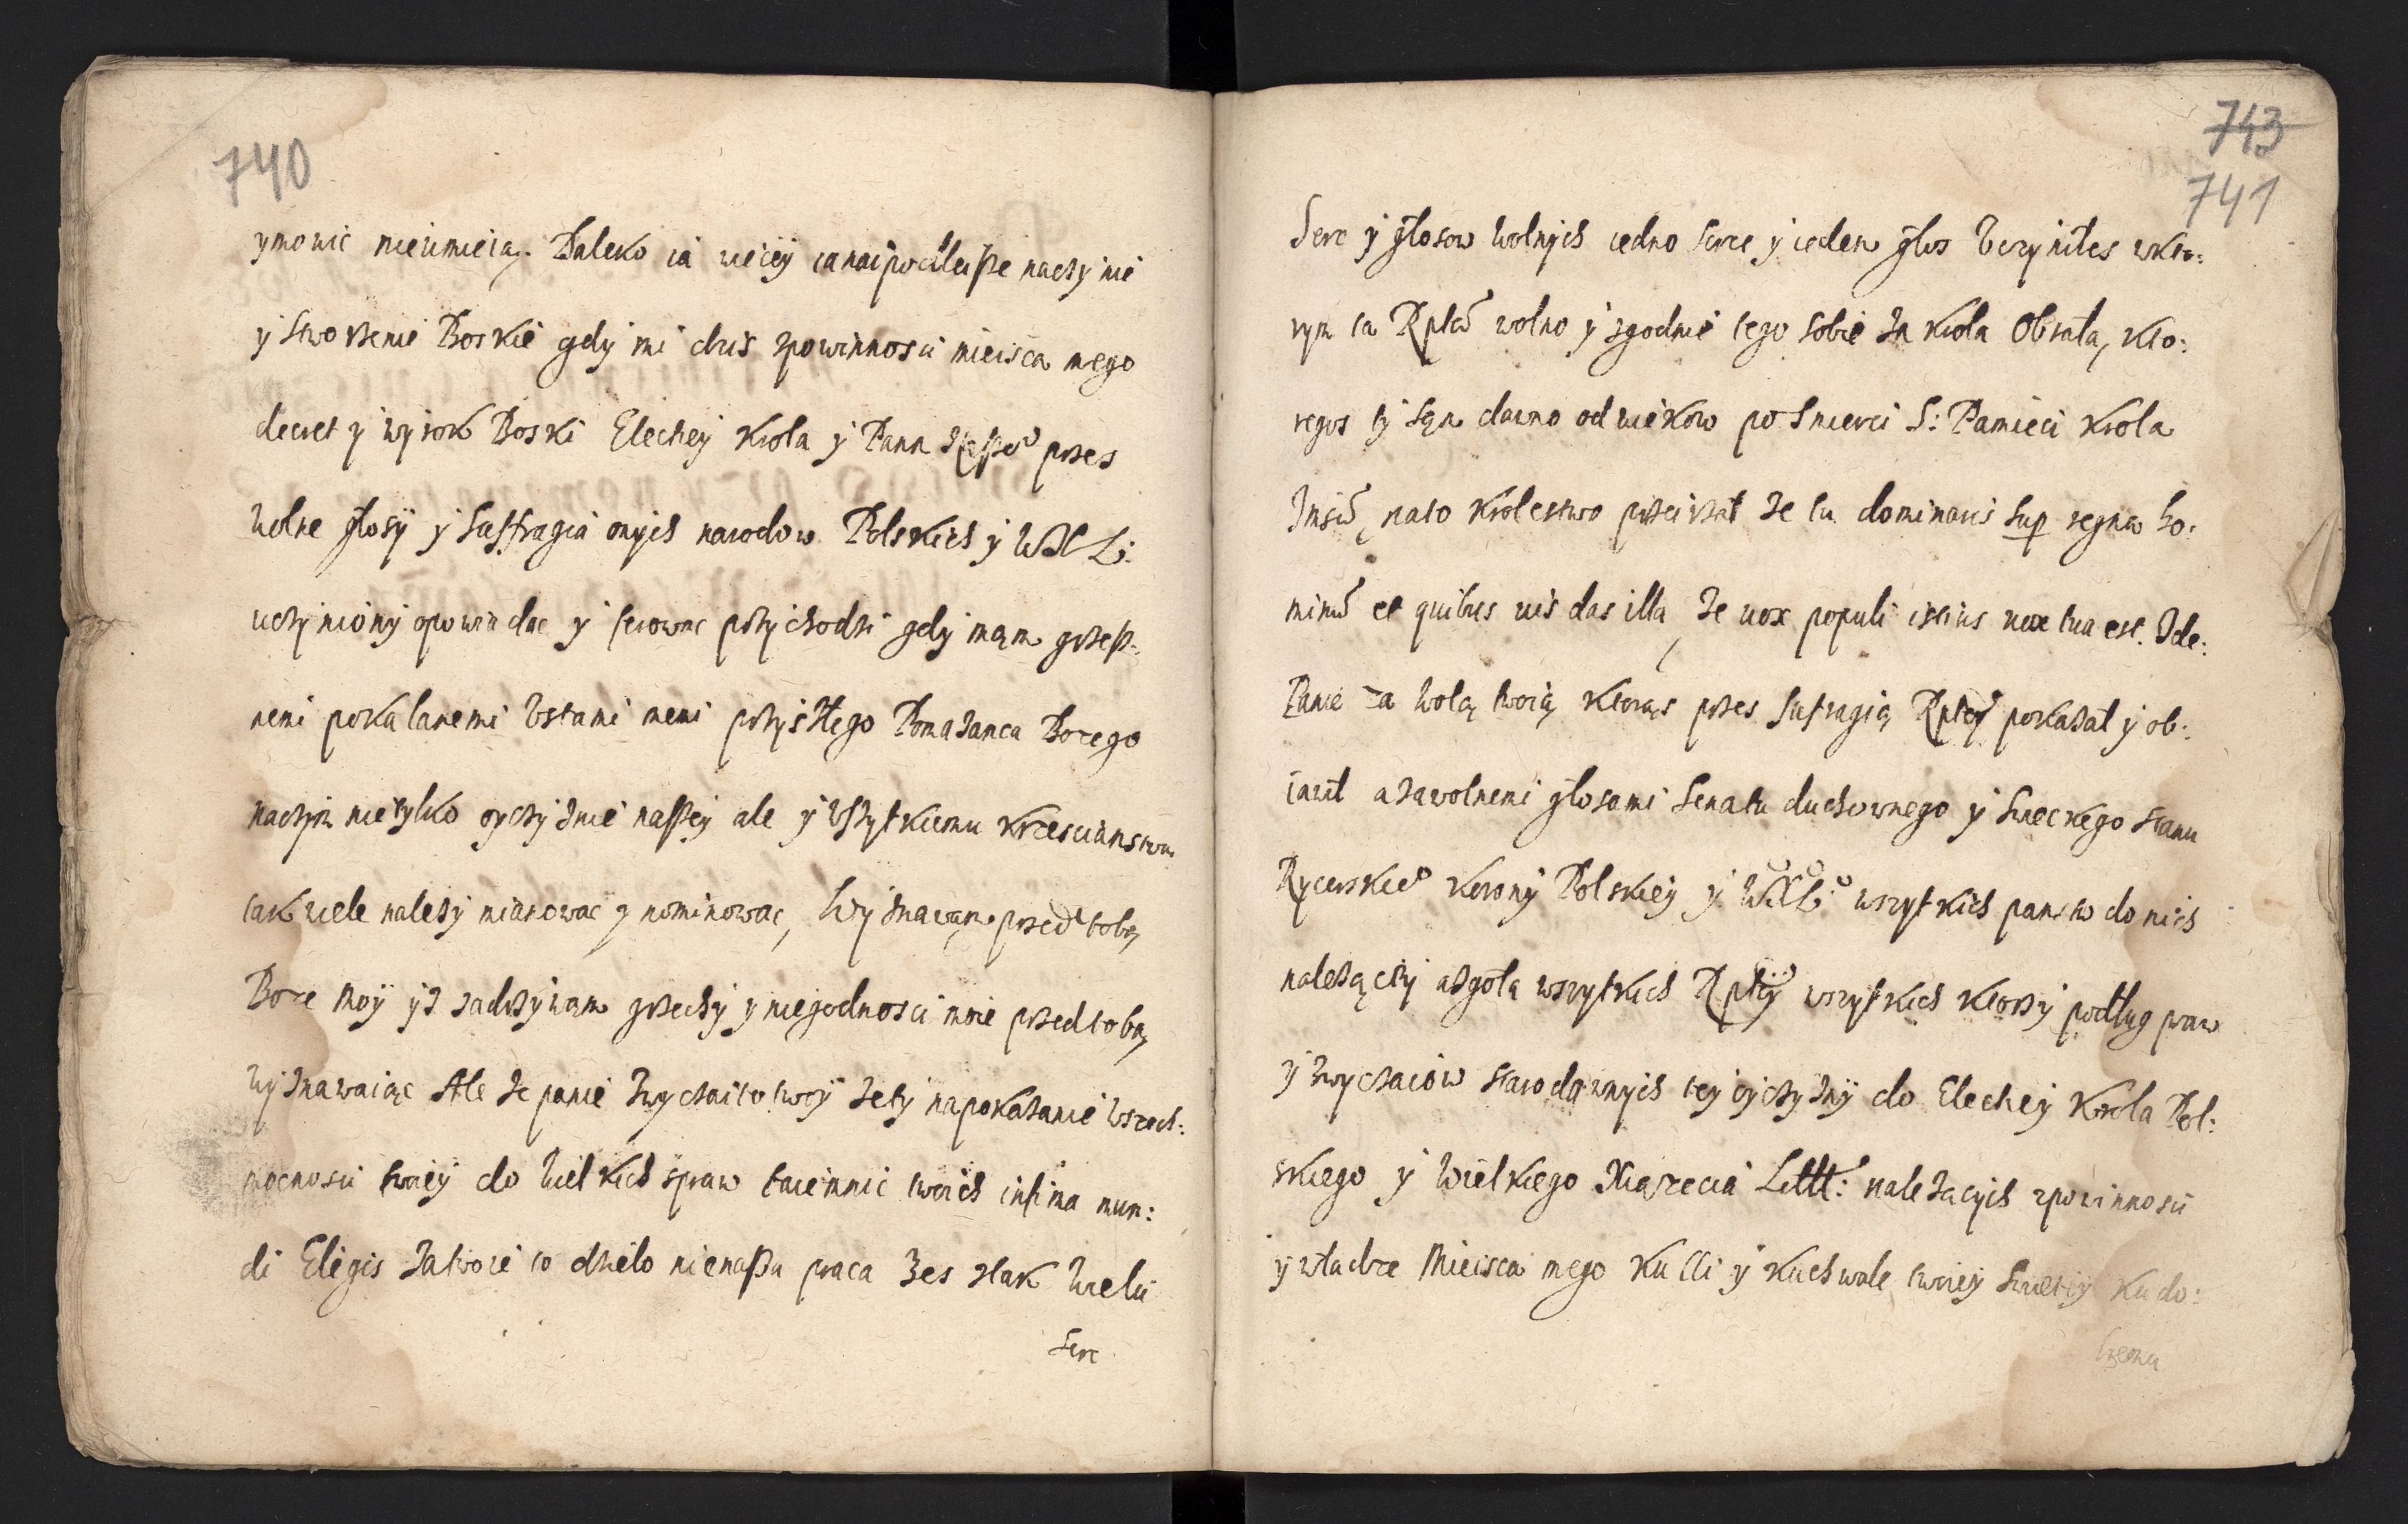 740
ymowic nieumieią. Daleko ia wiecey ia naipodleisze naczynie
y stworzenie Boskie gdy mi dzis zpowinnosci mieisca mego
decret y wyrok Boski Elechey Krola y Pana przes
Wolne głosy y Suffragia onych narodow Polskich y WXL:
uczyniony opowiadac y ferowac przychodzi gdy mam grzesz:
nemi pokalanemi Ustami memi przyszłego Pomazanca Bozego
naczym nietylko oyczyznie naszey ale y Wszytkiemu krzescianstwu
tak wiele nalezy mianowac y nominowac, Wyznawam przed tobą
Boze moy yz zadrzywam grzechy y niegodnosci moie przed tobą
Wyznawaiąc Ale ze panie Zwyczai to twoy zety napokazanie Wszech:
mocnosci twoiey do Wielkich spraw taiemnic twoich infima mun:
di Eligis Zatwoie to dzielo nienasza praca zes ztak Wielu
Serc
743
741
Serc y głosow Wolnych iedno serce y ieden głos Uczyniłes wkto:
rym ta Rpta wolno y zgodnie tego sobie za Krola Obrała, kto:
regos ty sąm dawno odwiekow po Smierci S: Pamieci Krola
nato krolestwo przeirzał ze tu dominaris sup regna ho:
minu et quibus vis das illa, ze vox populi istius vox tua est. Ide:
Panie za Wolą twoią ktorąs przes sufragią Rptey pokazał y ob:
iawił azawolnemi głosami Senatu duchownego y Swieckego stanu
Rycerskieo Korony Polskiey y WXL: wszytkich panstw do nich
należączy azgoła wszytkich Rptey wszytkich ktorzy podług praw
y Zwyczaiow starodawnych tey oyczyzny do Elechey Krola Pol:
skiego y Wielkiego Xiązecia Littt: nalezacych zpowinnosci
y władze Mieisca mego Ku Cci y Kuchwale twoiey Swietey Ku do: